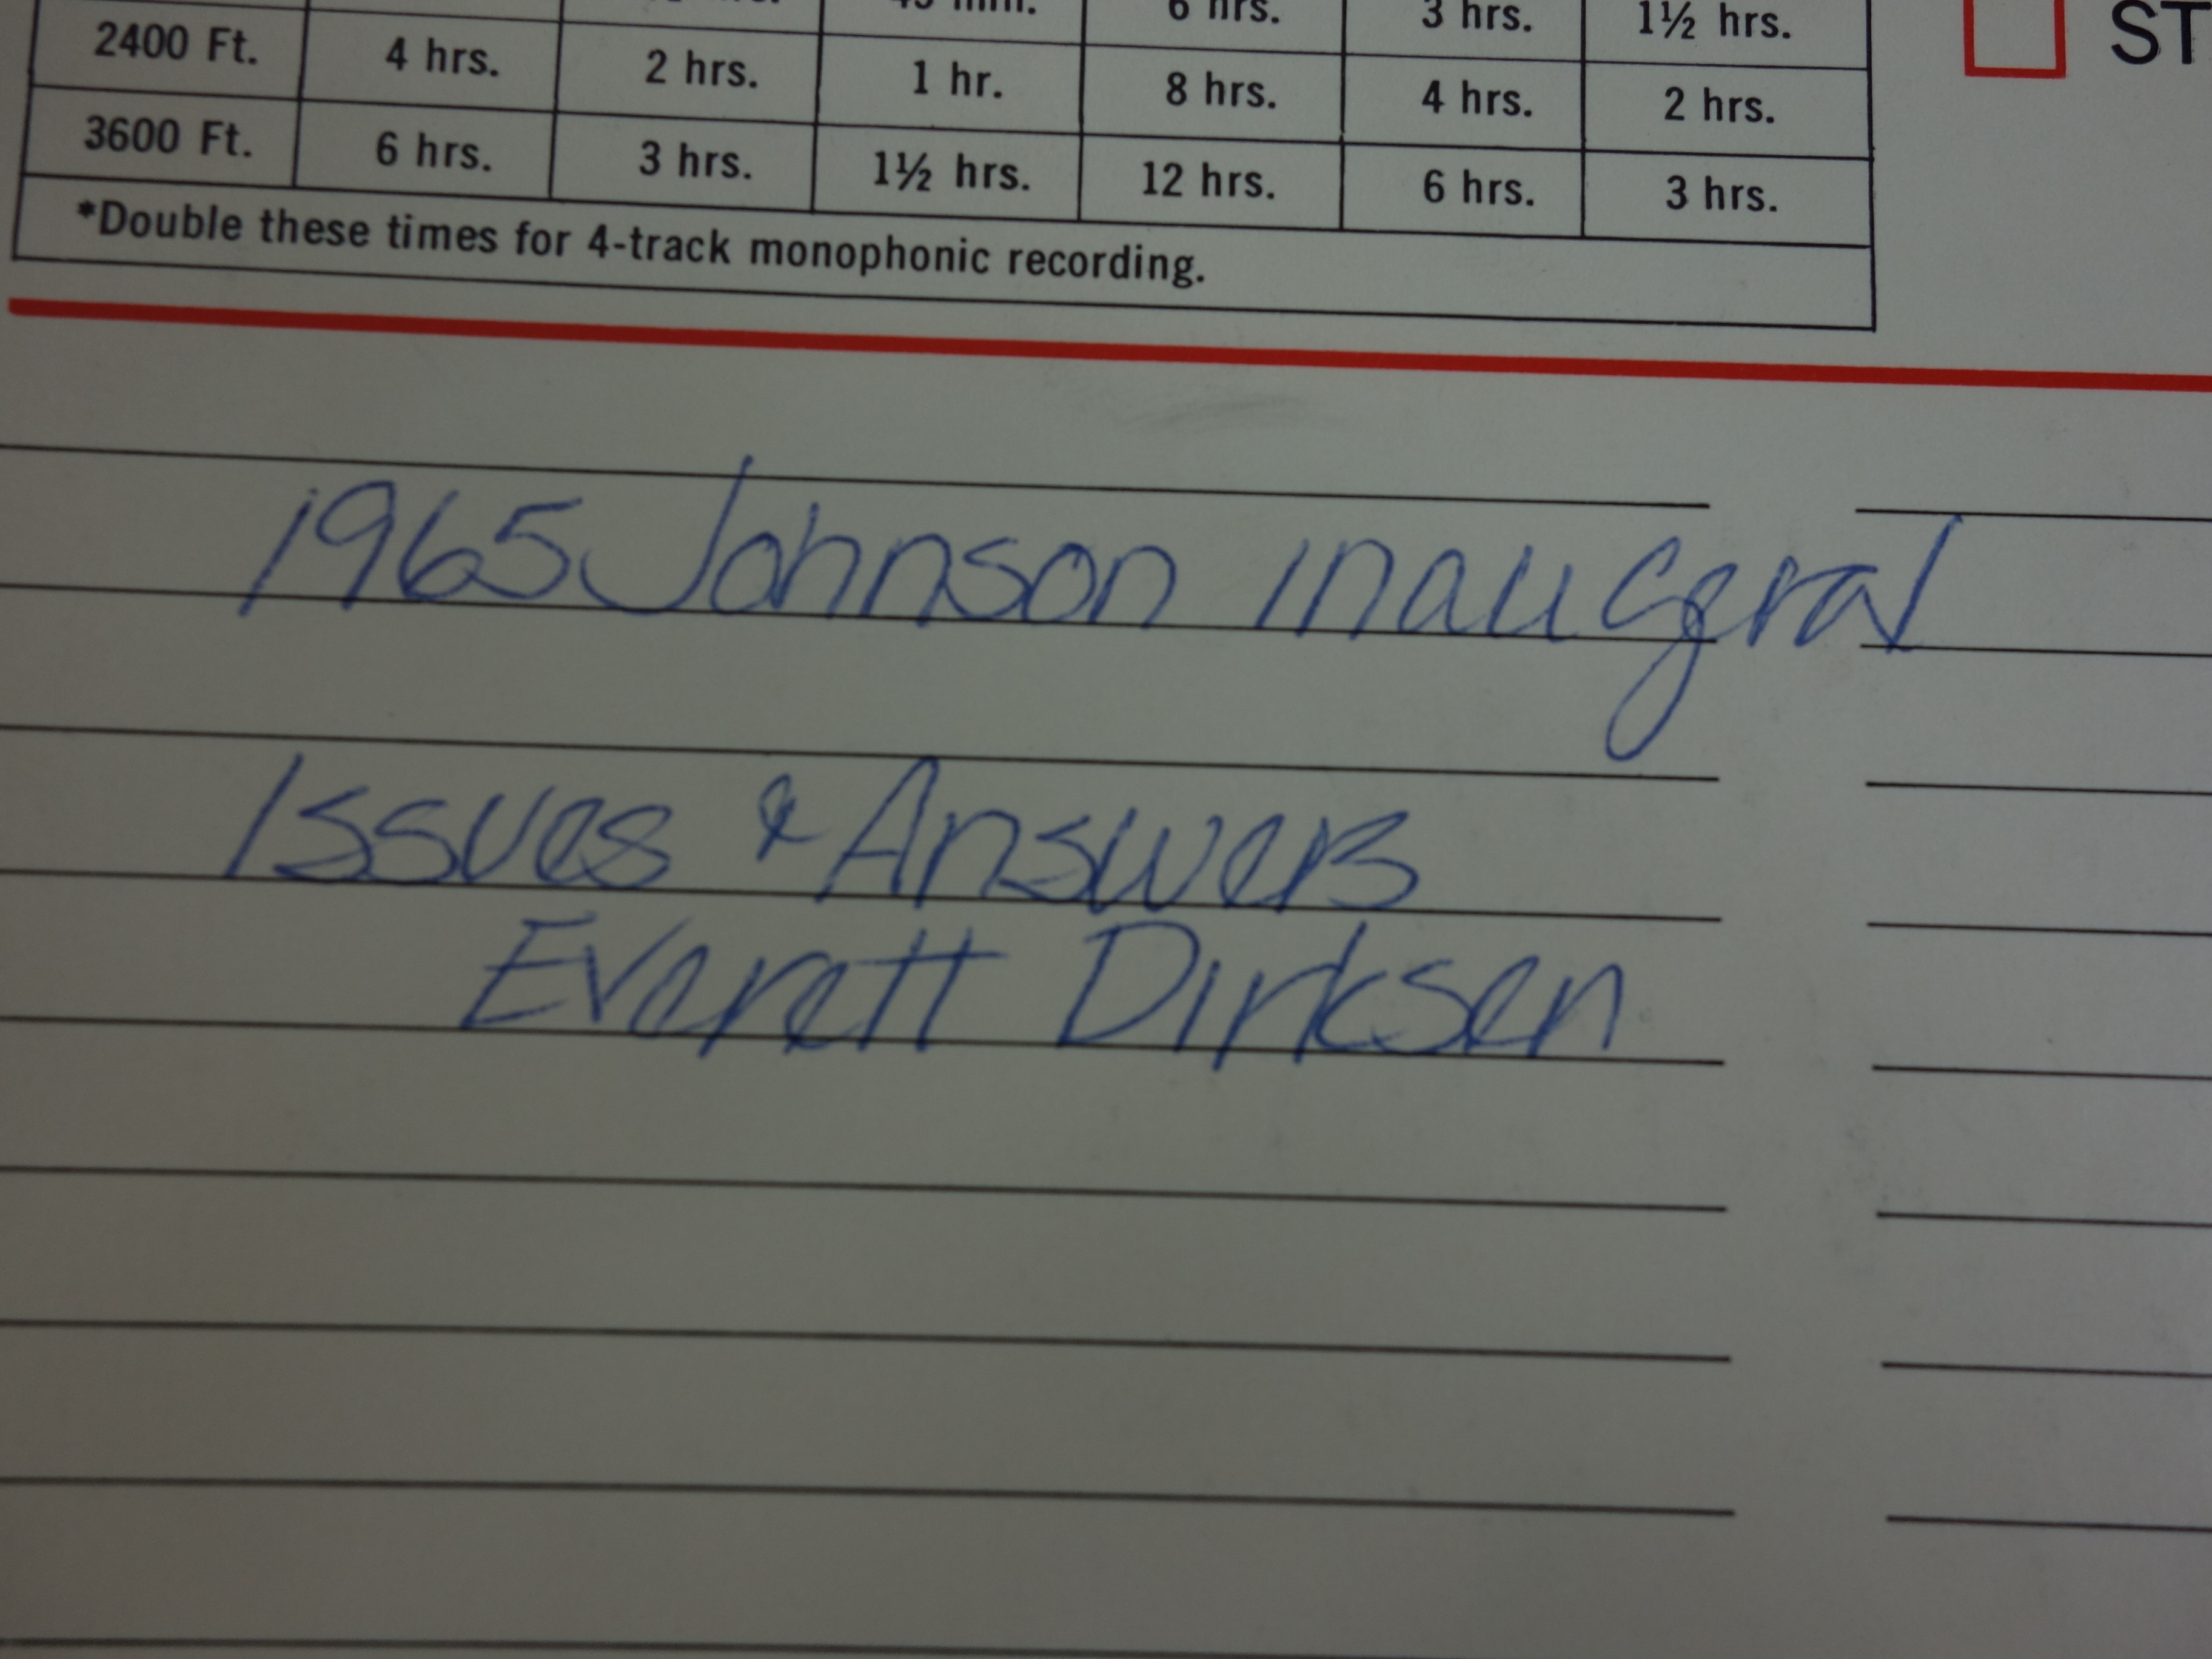 6 hrs. 3 hrs. 1½ hrs.
2400 Ft. 4 hrs. 2 hrs. 1 hr. 8 hrs. 4 hrs. 2 hrs.
3600 Ft. 6 hrs. 3 hrs. 1½ hrs. 12 hrs. 6 hrs. 3 hrs.
*Double these times for 4-track monophonic recording.
ST
1965 Johnson inaugeral
Issues & Answers
Everett Dirksen